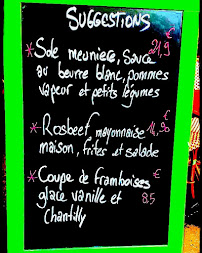 SUGGESTIONS
* Sole meunière, sauce 21,9 €
au beurre blanc, pommes
vapeur et petits légumes
* Rosbeef mayonnaise 16,90 €
maison, frites et salade
* Coupe de framboises €
glace vanille et 8.5
Chantilly